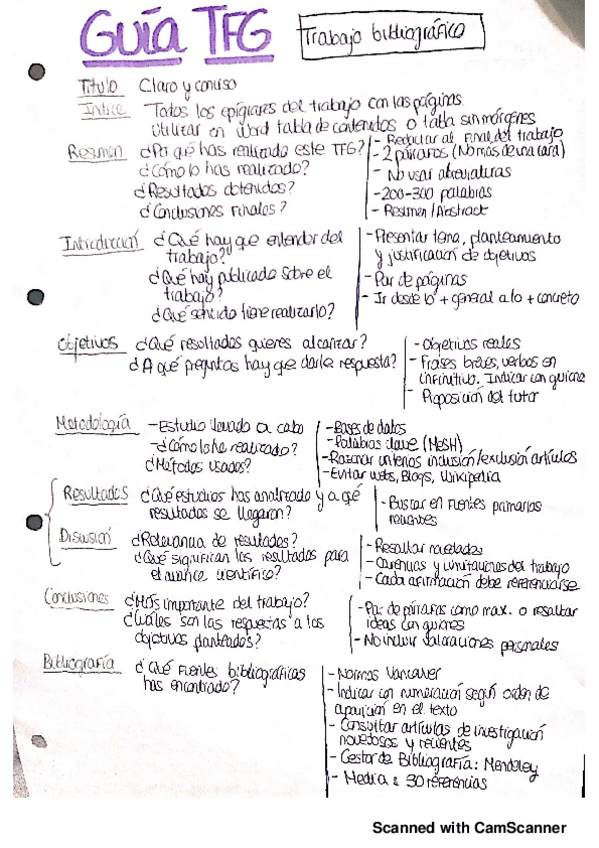 Guía TFG
Trabajo bibliográfico
Título Claro y conciso
Índice Todos los epígrafes del trabajo con las páginas.
Utilizar en Word tabla de contenidos o tabla sin márgenes
Resumen ¿Por qué has realizado este TFG?
¿Cómo lo has realizado?
¿Resultados obtenidos?
¿Conclusiones finales?
- Redactar al final del trabajo
- 2 párrafos (No más de una cara)
- No usar abreviaturas
- 200-300 palabras
- Resumen/Abstract
Introducción ¿Qué hay que entender del
trabajo?
¿Qué hay publicado sobre el
trabajo?
¿Qué sentido tiene realizarlo?
- Presentar tema, planteamiento
y justificación de objetivos
- Par de páginas
- Ir desde lo + general a lo + concreto
Objetivos ¿Qué resultados quieres alcanzar?
¿A qué preguntas hay que darle respuesta?
- Objetivos reales
- Frases breves, verbos en
infinitivo. Indicar con guiones
- Proposición del tutor
Metodología - Estudio llevado a cabo
- ¿Cómo lo he realizado?
¿Métodos usados?
- Bases de datos
- Palabras clave (MeSH)
- Razonar criterios inclusión/exclusión artículos
- Evitar webs, Blogs, Wikipedia
Resultados ¿Qué estudios has analizado y a qué
resultados se llegaron?
- Buscar en fuentes primarias
recientes
Discusión ¿Relevancia de resultados?
¿Qué significan los resultados para
el avance científico?
- Resaltar novedades
- Carencias y limitaciones del trabajo
- Cada afirmación debe referenciarse
Conclusiones ¿Más importante del trabajo?
¿Cuáles son las respuestas a los
objetivos planteados?
- Par de párrafos como max. o resaltar
ideas con guiones
- No incluir valoraciones personales
Bibliografía ¿Qué fuentes bibliográficas
has encontrado?
- Normas Vancouver
- Indicar con numeración según orden de
aparición en el texto
- Consultar artículos de investigación
novedosos y recientes
- Gestor de Bibliografía: Mendeley
- Media: 30 referencias
Scanned with CamScanner